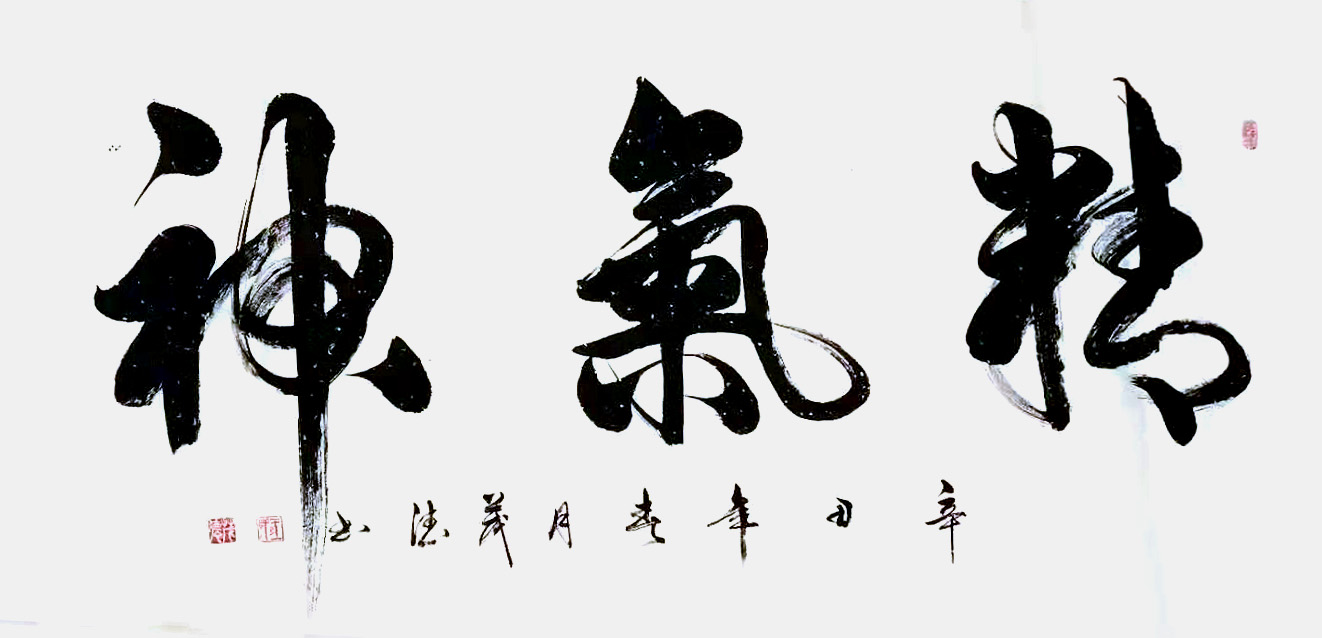 精氣神
辛丑年春月茂德书